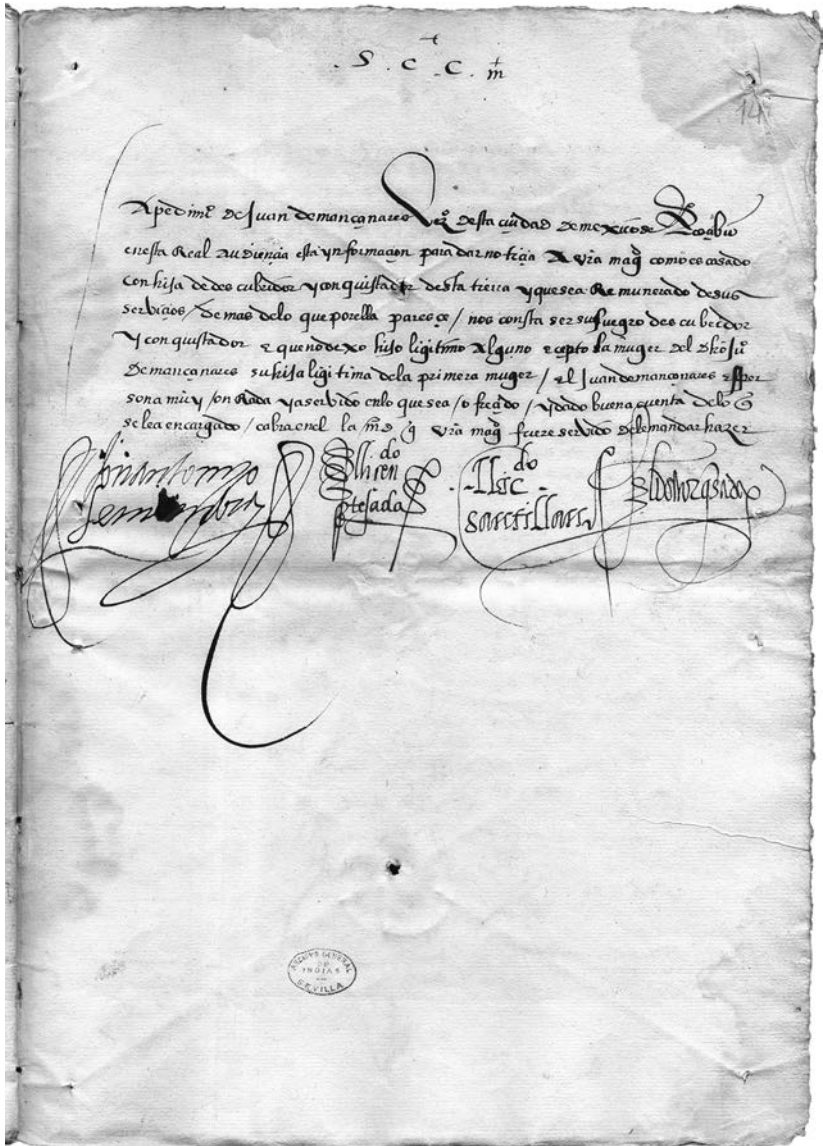 . S . C . C . m
141
Apedimiº de Juan demançanares vezº desta ciudad demexico se Recibio
enesta Real audiençia esta ynformaçion para dar notiçia A vra magᵈ como es casado
con hija de descubridor y conquistador desta tierra y que sea Remunerado desus
serviçios / demas delo que por ella paresçe / nos consta ser su suegro descubridor
y conquistador e que no dexo hijo ligitimo Alguno eçepto la muger del dho juº
demançanares su hija ligitima dela primera muger / el Juan demançanares es per
sona muy / onRada y a servido enlo que sea / ofreçido / y dado buena cuenta delo q
se lea encargado / cabra enel la mᵈ q vra magᵈ fuere servido dele mandar hazer
don antonio
de mendoça
El liçen
do
tejada
El liçdo
santillan
El doctor quesada
ARCHIVO GENERAL
DE
INDIAS
SEVILLA